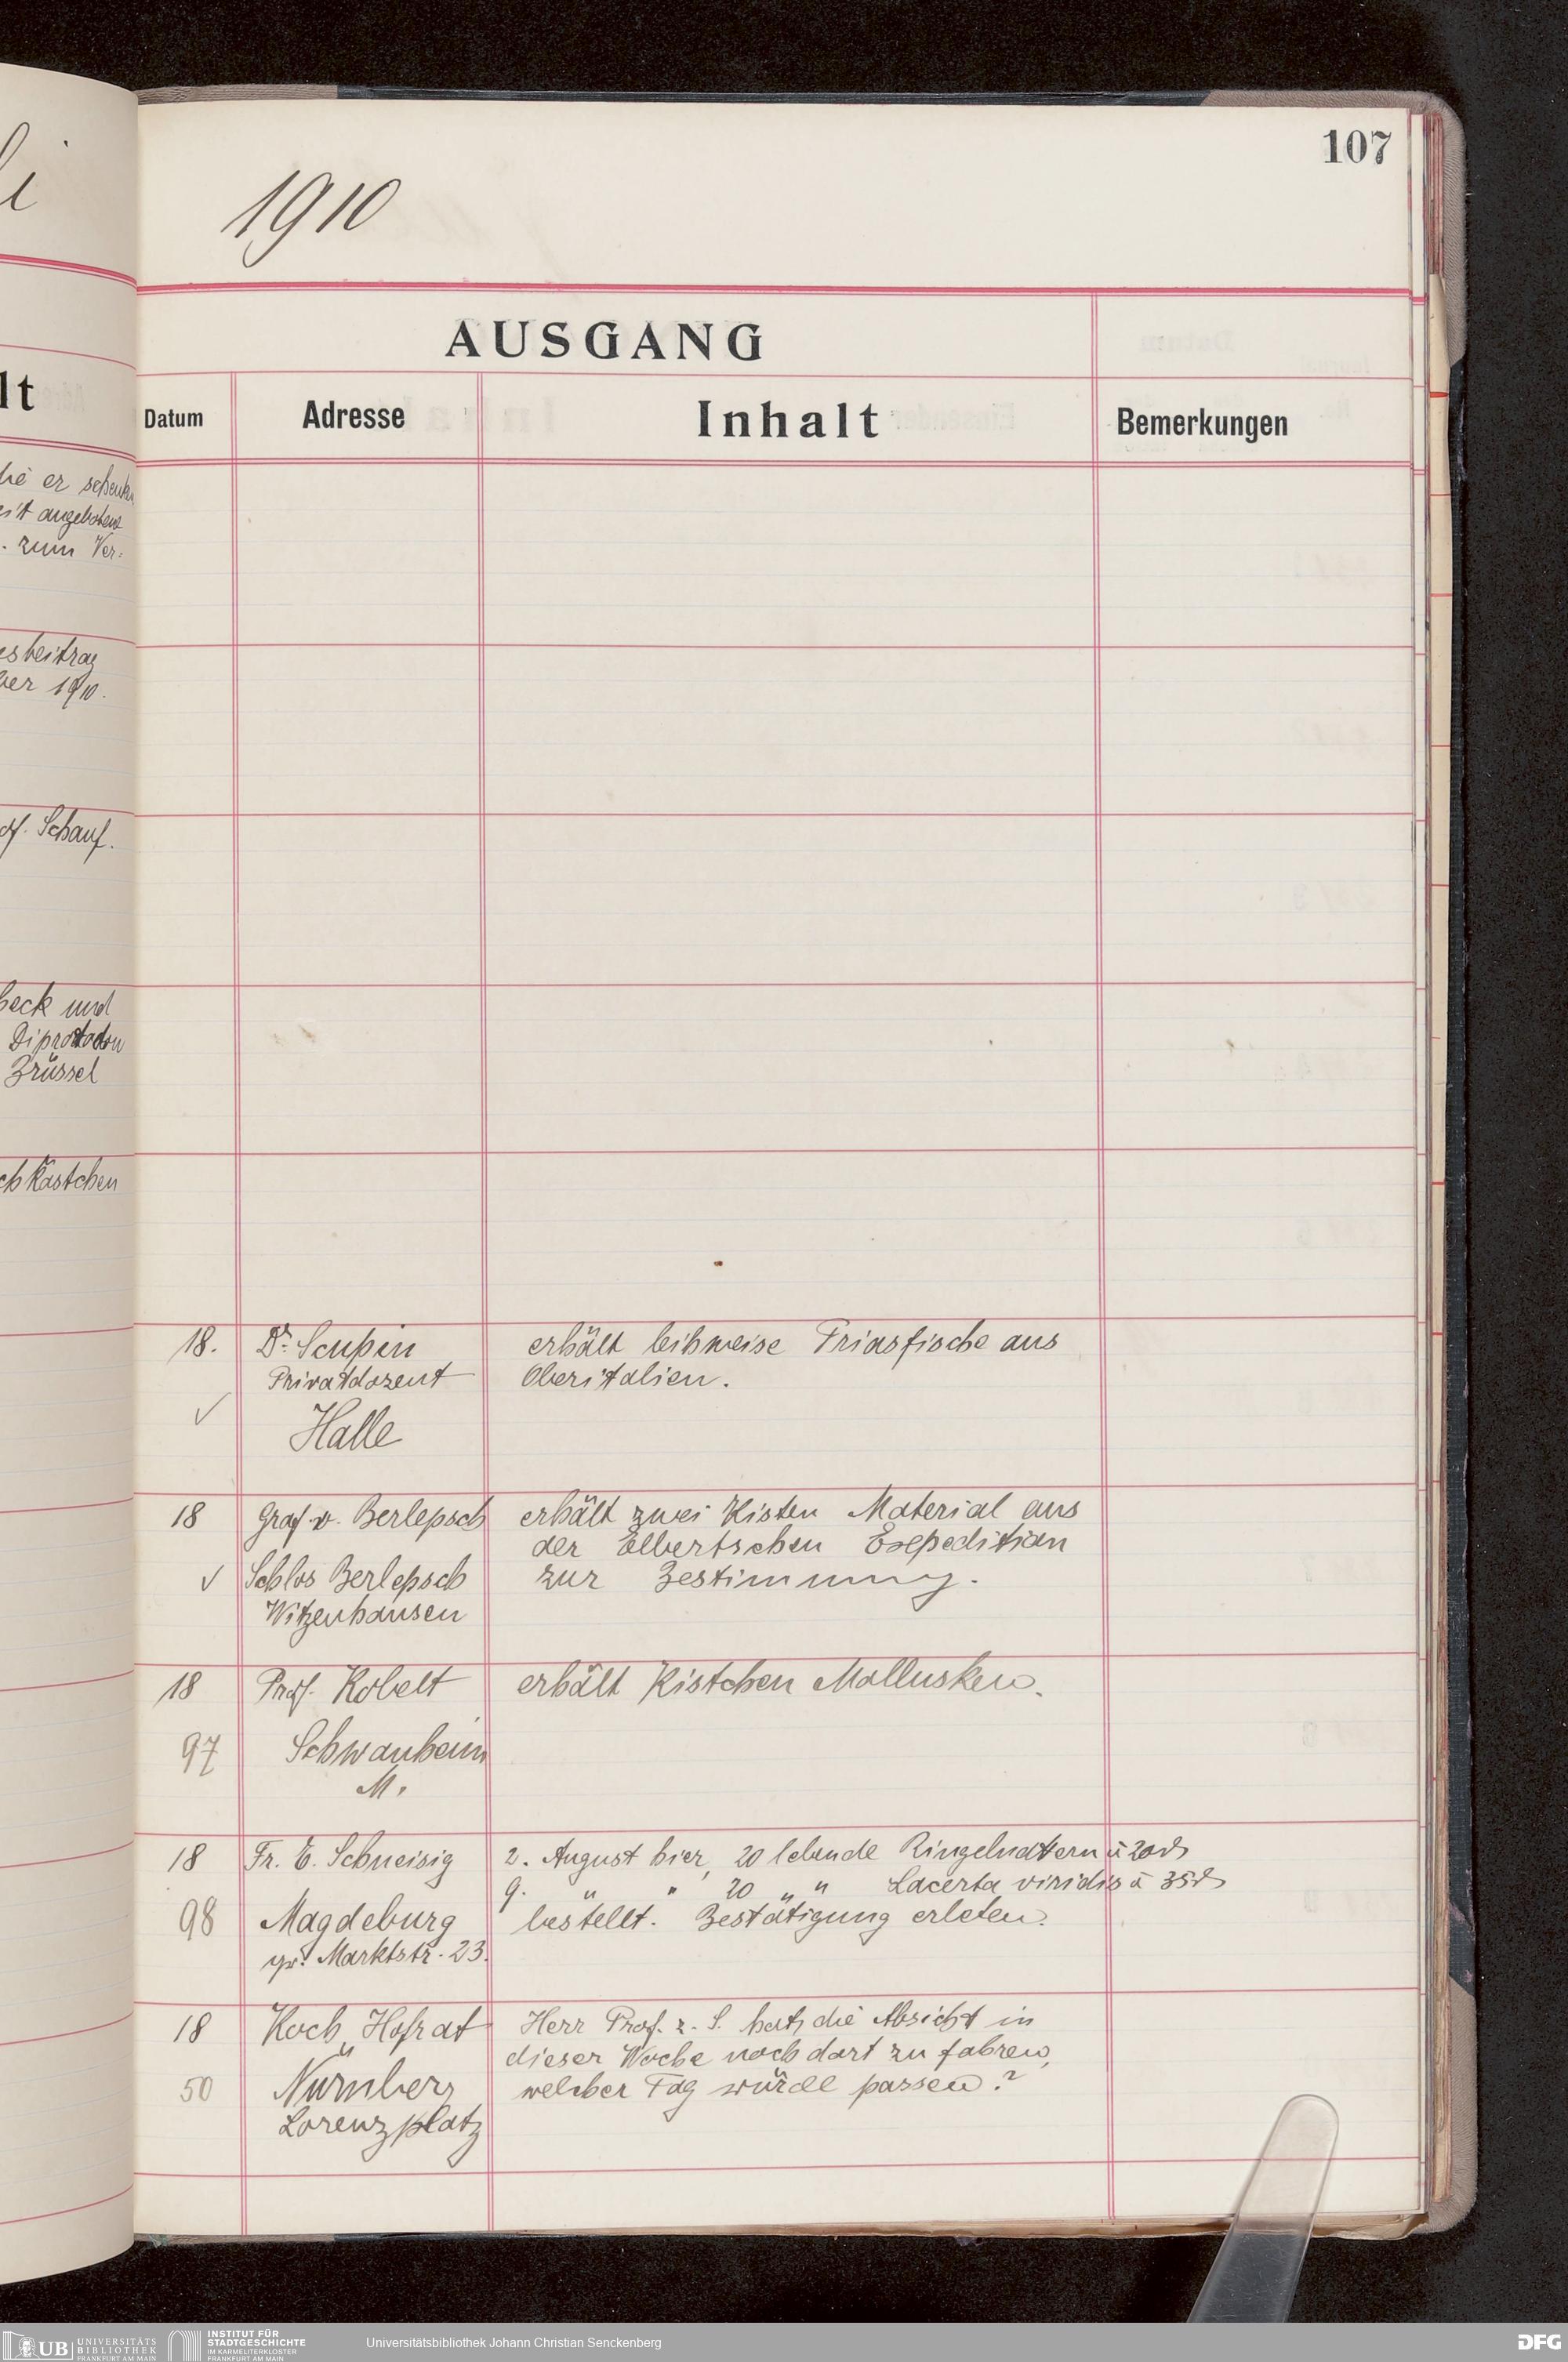 107
1910
AUSGANG
Datum Adresse Inhalt Bemerkungen
lt
er schenkt
angebotene
zum Ver:
1910.
Schauf.
beck und
Diprotodon
Brüssel
Kästchen
18. Dr. Scupin erhält leihweise Triasfische aus
Privatdozent Oberitalien.
✓
Halle
18 Graf v. Berlepsch erhält zwei Kisten Material aus
der Elbertschen Expedition
✓ Schlos Berlepsch zur Bestimmung.
Witzenhausen
18 Prof. Kobelt erhält Kistchen Mollusken.
97 Schwanheim
M.
18 Fr. E. Schneisig 2. August hier, 20 lebende Ringelnattern à 20 ₰
9. " " 20 " " Lacerta viridis à 35 ₰
98 Magdeburg bestellt. Bestätigung erbeten.
gr. Marktstr. 23.
18 Koch, Hofrat Herr Prof. z. S. hat die Absicht in
dieser Woche noch dort zu fahren,
50 Nürnberg welcher Tag würde passen?
Lorenzplatz
UB UNIVERSITÄTS
BIBLIOTHEK
FRANKFURT AM MAIN
INSTITUT FÜR
STADTGESCHICHTE
IM KARMELITERKLOSTER
FRANKFURT AM MAIN
Universitätsbibliothek Johann Christian Senckenberg
DFG